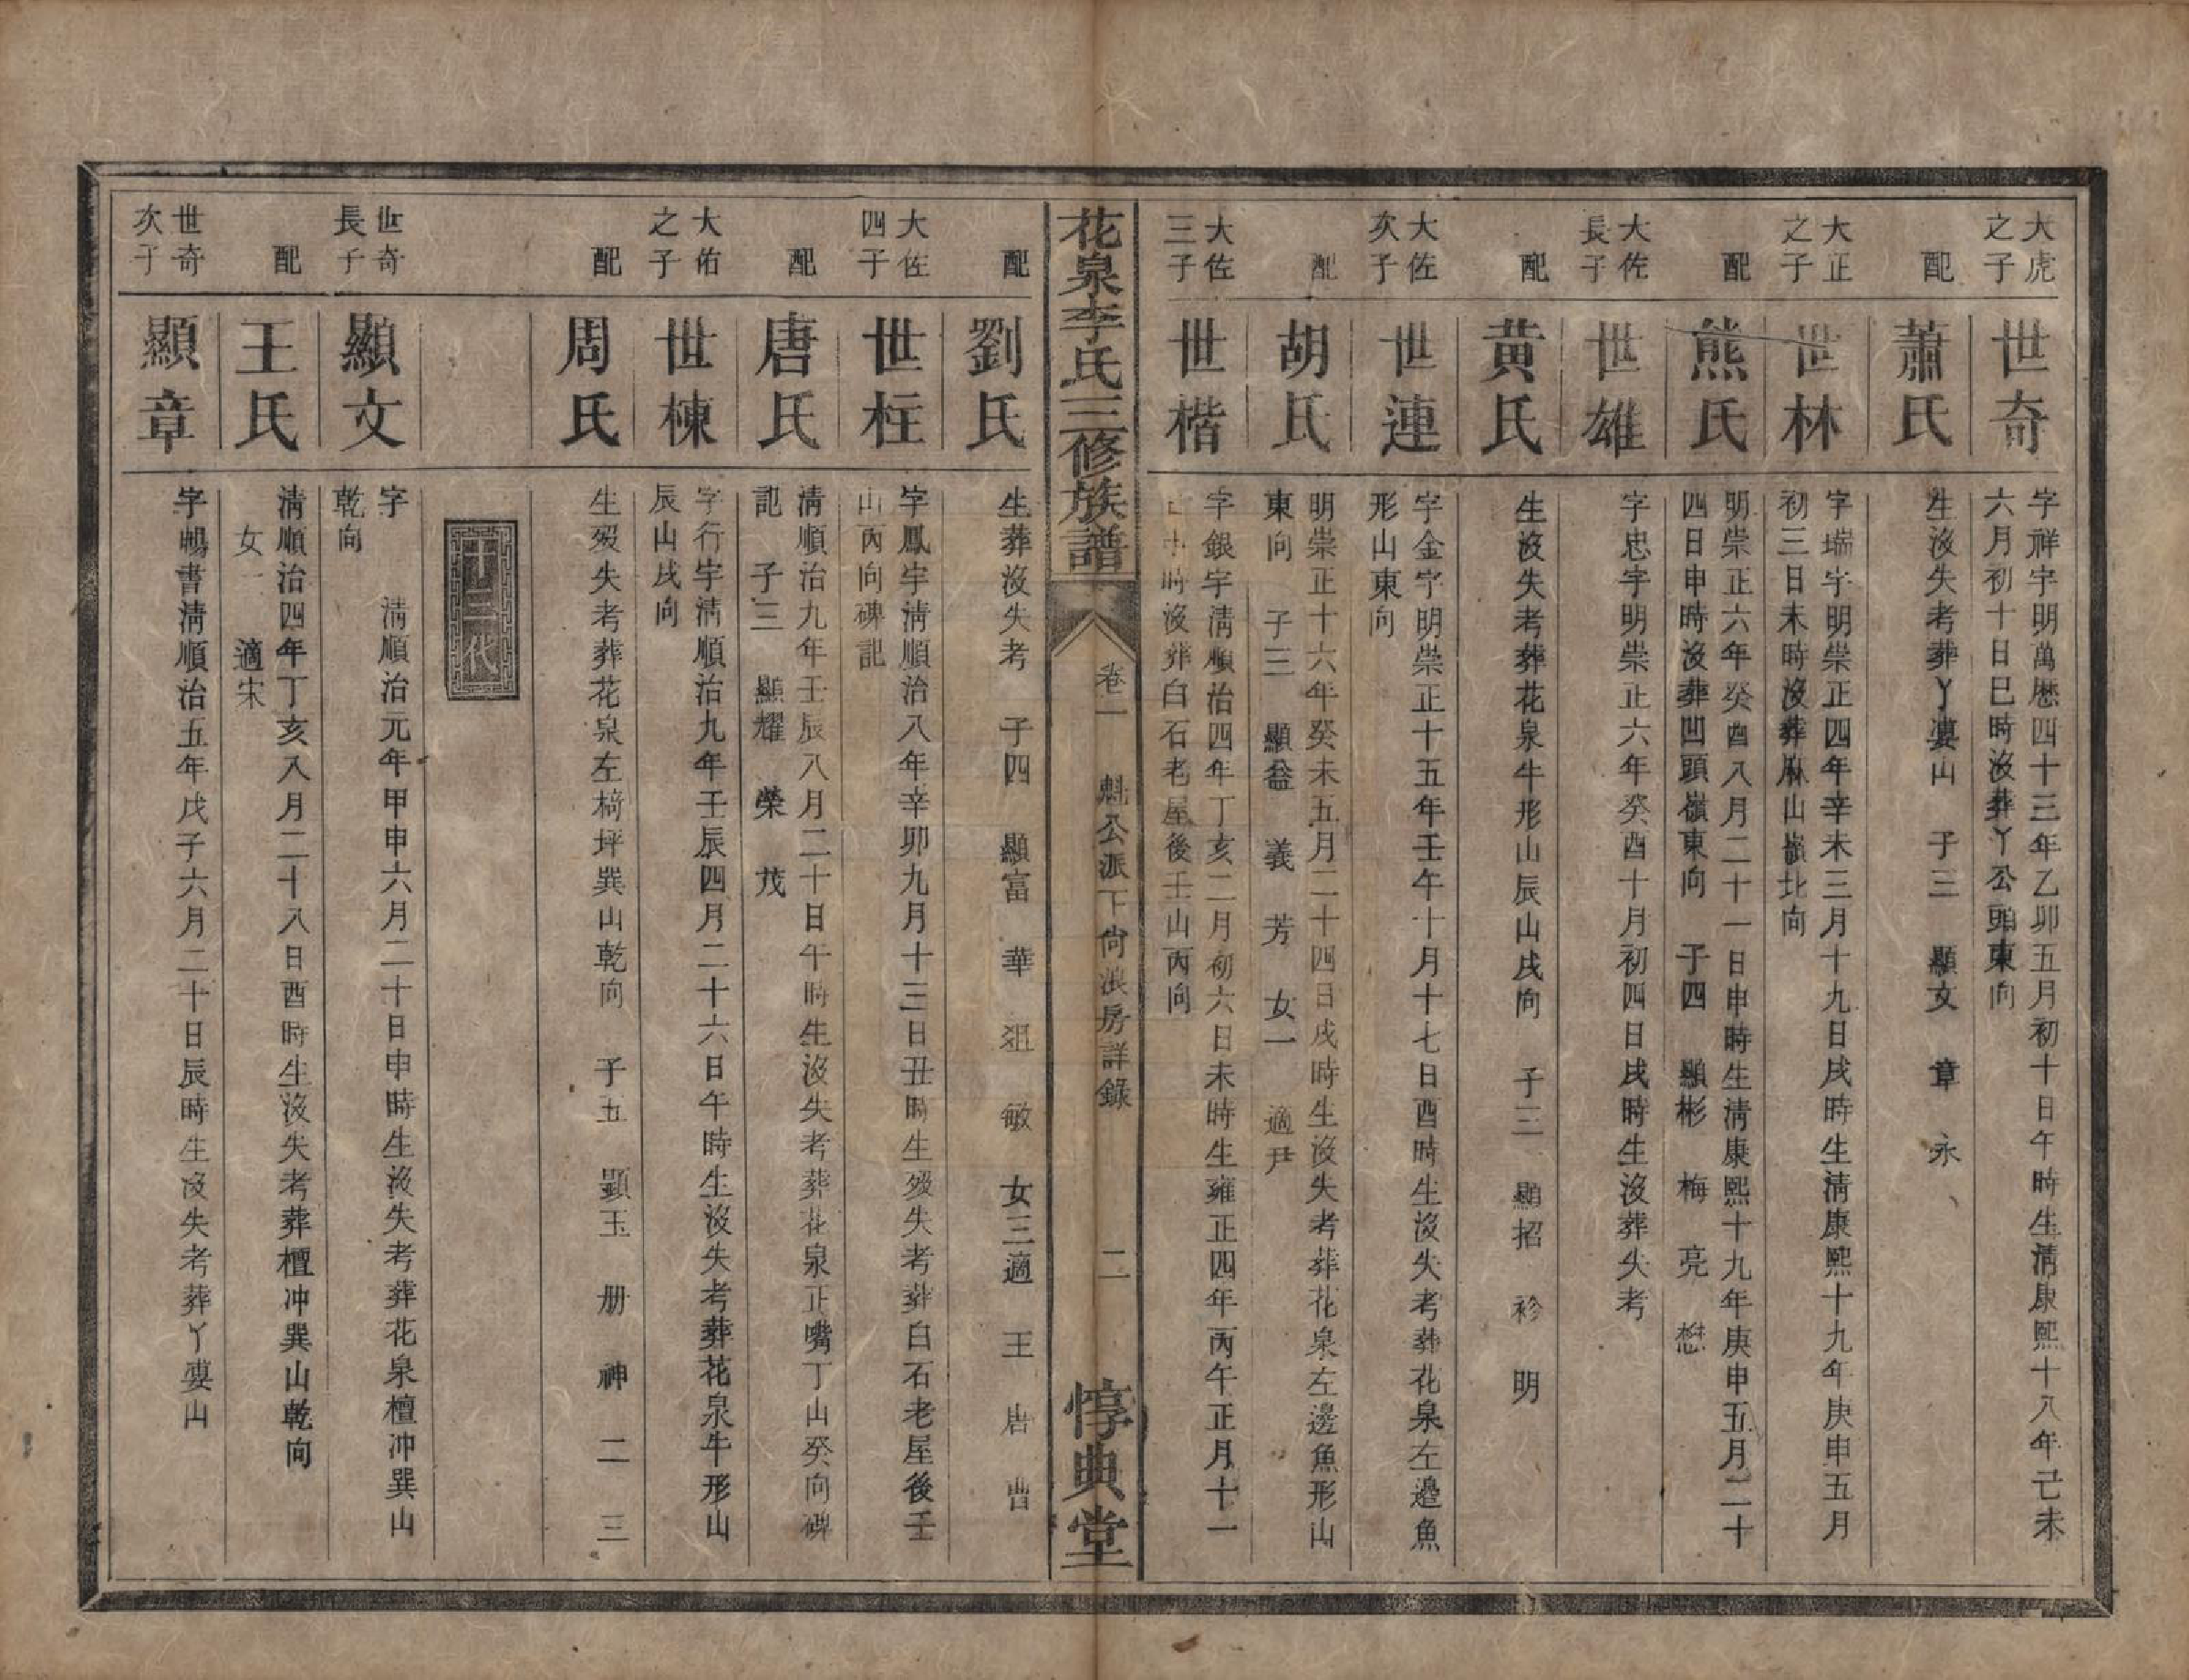 大虎
之子
世奇
字祥宇明萬厯四十三年乙卯五月初十日午時生清康熙十八年己未
六月初十日巳時沒葬丫公頭東向
配
蕭氏
生沒失考葬丫婁山　子三　顯文　章　永
大正
之子
世林
字瑞宇明崇正四年辛未三月十九日戌時生清康熙十九年庚申五月
初三日未時沒葬麻山嶺北向
配
熊氏
明崇正六年癸酉八月二十一日申時生清康熙十九年庚申五月二十
四日申時沒葬凹頭嶺東向　子四　顯彬　梅　亮　懋
大佐
長子
世雄
字忠宇明崇正六年癸酉十月初四日戌時生沒葬失考
配
黃氏
生沒失考葬花泉牛形山辰山戌向　子三　顯招　衫　明
大佐
次子
世連
字金宇明崇正十五年壬午十月十七日酉時生沒失考葬花泉左邊魚
形山東向
配
胡氏
明崇正十六年癸未五月二十四日戌時生沒失考葬花泉左邊魚形山
東向　子三　顯益　義　芳　女一　適尹
大佐
三子
世楷
字銀宇清順治四年丁亥二月初六日未時生雍正四年丙午正月十一
日　時沒葬白石老屋後壬山丙向
花泉李氏三修族譜
卷二　魁公派下尙浪房詳錄　二
惇典堂
配
劉氏
生葬沒失考　子四　顯富　華　俎　敏　女三適　王　唐　曹
大佐
四子
世柱
字鳳宇淸順治八年辛卯九月十三日丑時生歿失考葬白石老屋後壬
山丙向碑記
配
唐氏
清順治九年壬辰八月二十日午時生沒失考葬花泉正嘴丁山癸向碑
記　子三　顯耀　榮　茂
大佑
之子
世棟
字行宇淸順治九年壬辰四月二十六日午時生沒失考葬花泉牛形山
辰山戌向
配
周氏
生歿失考葬花泉左檹坪巽山乾向　子五　顯玉　册　神　二　三
十二代
世奇
長子
顯文
字　　清順治元年甲申六月二十日申時生沒失考葬花泉檀冲巽山
乾向
配
王氏
淸順治四年丁亥八月二十八日酉時生沒失考葬檀冲巽山乾向
女一　適宋
世奇
次子
顯章
字暢書淸順治五年戊子六月二十日辰時生沒失考葬丫婁山